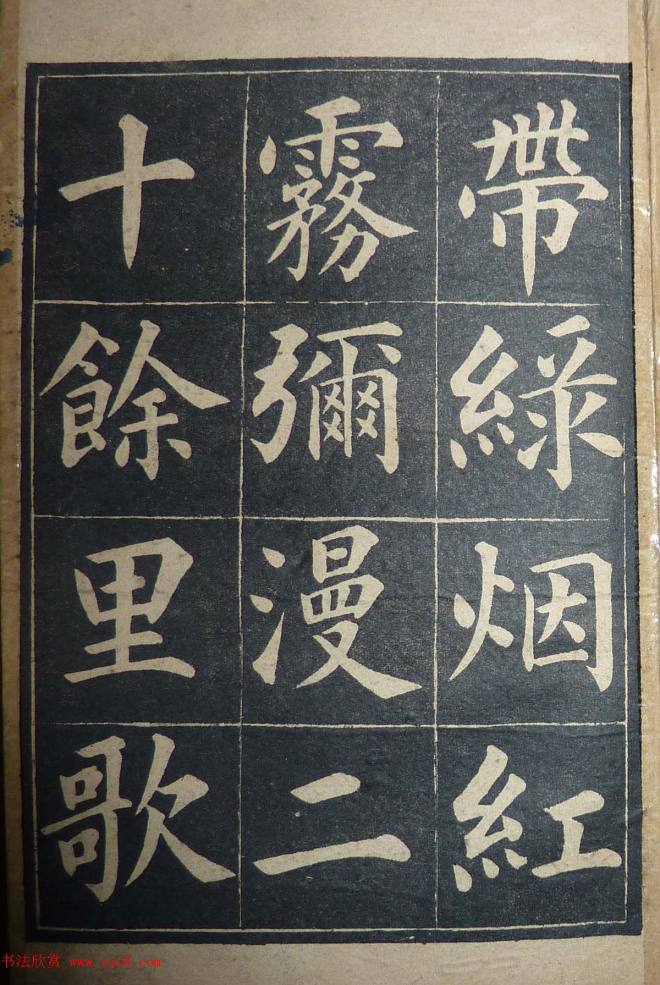 帶綠烟紅
霧彌漫二
十餘里歌
书法欣赏